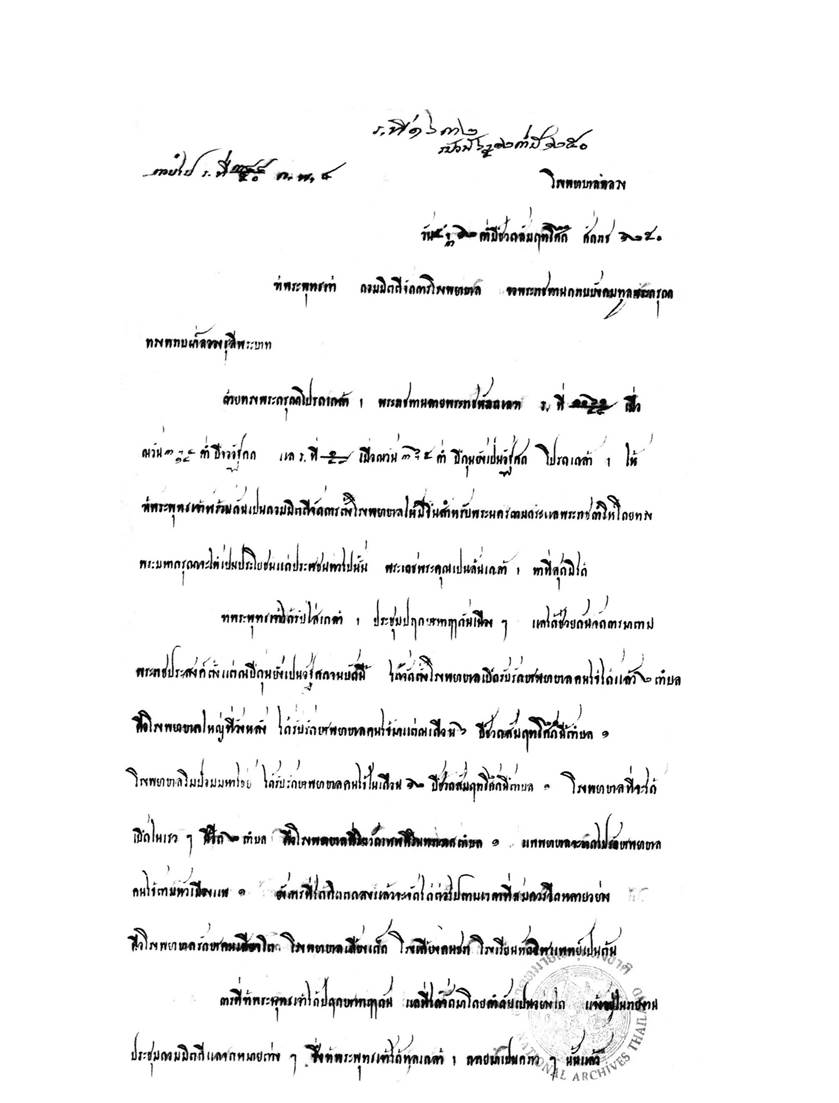 ร,ที่ ๑๖๓๒
โรงพยาบาลหลวง
ปีชวดสัมฤทธิศก ศักราช ๑๒๕๐
ข้าพระพุทธเจ้า กอมมิตตีจัดการโรงพยาบาล ขอพระราชทานกราบบังคมทูลพระกรุณา
ทราบฝ่าลอองธุลีพระบาท
ด้วยทรงพระกรุณาโปรดเกล้า ฯ พระราชทานลายพระราชหัตถเลขา ร, ที่
ค่ำ ปีจอ แล ร, ที่ ค่ำ ปีกุนยังเปนอัฐศก โปรดเกล้า ฯ ให้
ข้าพระพุทธเจ้าพร้อมกันเปนกอมมิตตีจัดการตั้งโรงพยาบาลให้มีขึ้นสำหรับพระนครตามกระแสพระราชดำริห์โดยทรง
พระมหากรุณาจะให้เปนประโยชน์แก่ประชาชนทั่วไปนั้น พระเดชพระคุณเปนล้นเกล้า ฯ หาที่สุดมิได้
ข้าพระพุทธเจ้าได้รับใส่เกล้า ฯ ประชุมปฤกษาหารือกันเนือง ๆ แลได้ช่วยกันจัดการมาตาม
พระราชประสงค์ตั้งแต่ณปีกุนยังเปนอัฐศกจนบัดนี้ ได้จัดตั้งโรงพยาบาลเปิดรับรักษาพยาบาลคนไข้ได้แล้ว ๒ ตำบล
คือโรงพยาบาลใหญ่ที่วังหลัง ได้รับรักษาพยาบาลคนไข้มาแต่ณเดือน ๖ ปีชวดสัมฤทธิศกนี้ตำบล ๑
โรงพยาบาลริมป้อมมหาไชย ได้รับรักษาพยาบาลคนไข้ในเดือน ๑๒ ปีชวดสัมฤทธิศกนี้ตำบล ๑ โรงพยาบาลที่จะได้
เปิดในเร็ว ๆ นี้อีก ๒ ตำบล คือโรงพยาบาลที่วัดเทพศิรินทราวาสตำบล ๑ แพพยาบาลจะจัดไปรักษาพยาบาล
คนไข้ตามหัวเมืองแพ ๑ ยังการที่ได้คิดตกลงแล้วจะจัดได้ต่อไปตามเวลาที่สมควรอีกหลายอย่าง
คือโรงพยาบาลรักษาคนเสียจริต โรงพยาบาลเลี้ยงเด็ก โรงเลี้ยงคนชรา โรงเรียนหัดวิชาแพทย์เปนต้น
การที่ข้าพระพุทธเจ้าได้ปฤกษาหารือกัน แลที่ได้จัดมาโดยลำดับเปนอย่างใด แจ้งอยู่ในรายงาน
ประชุมกอมมิตตีแลจดหมายต่าง ๆ ซึ่งข้าพระพุทธเจ้าได้ทูลเกล้า ฯ ถวายมาเปนคราว ๆ นั้นแล้ว
NATIONAL ARCHIVES THAILAND